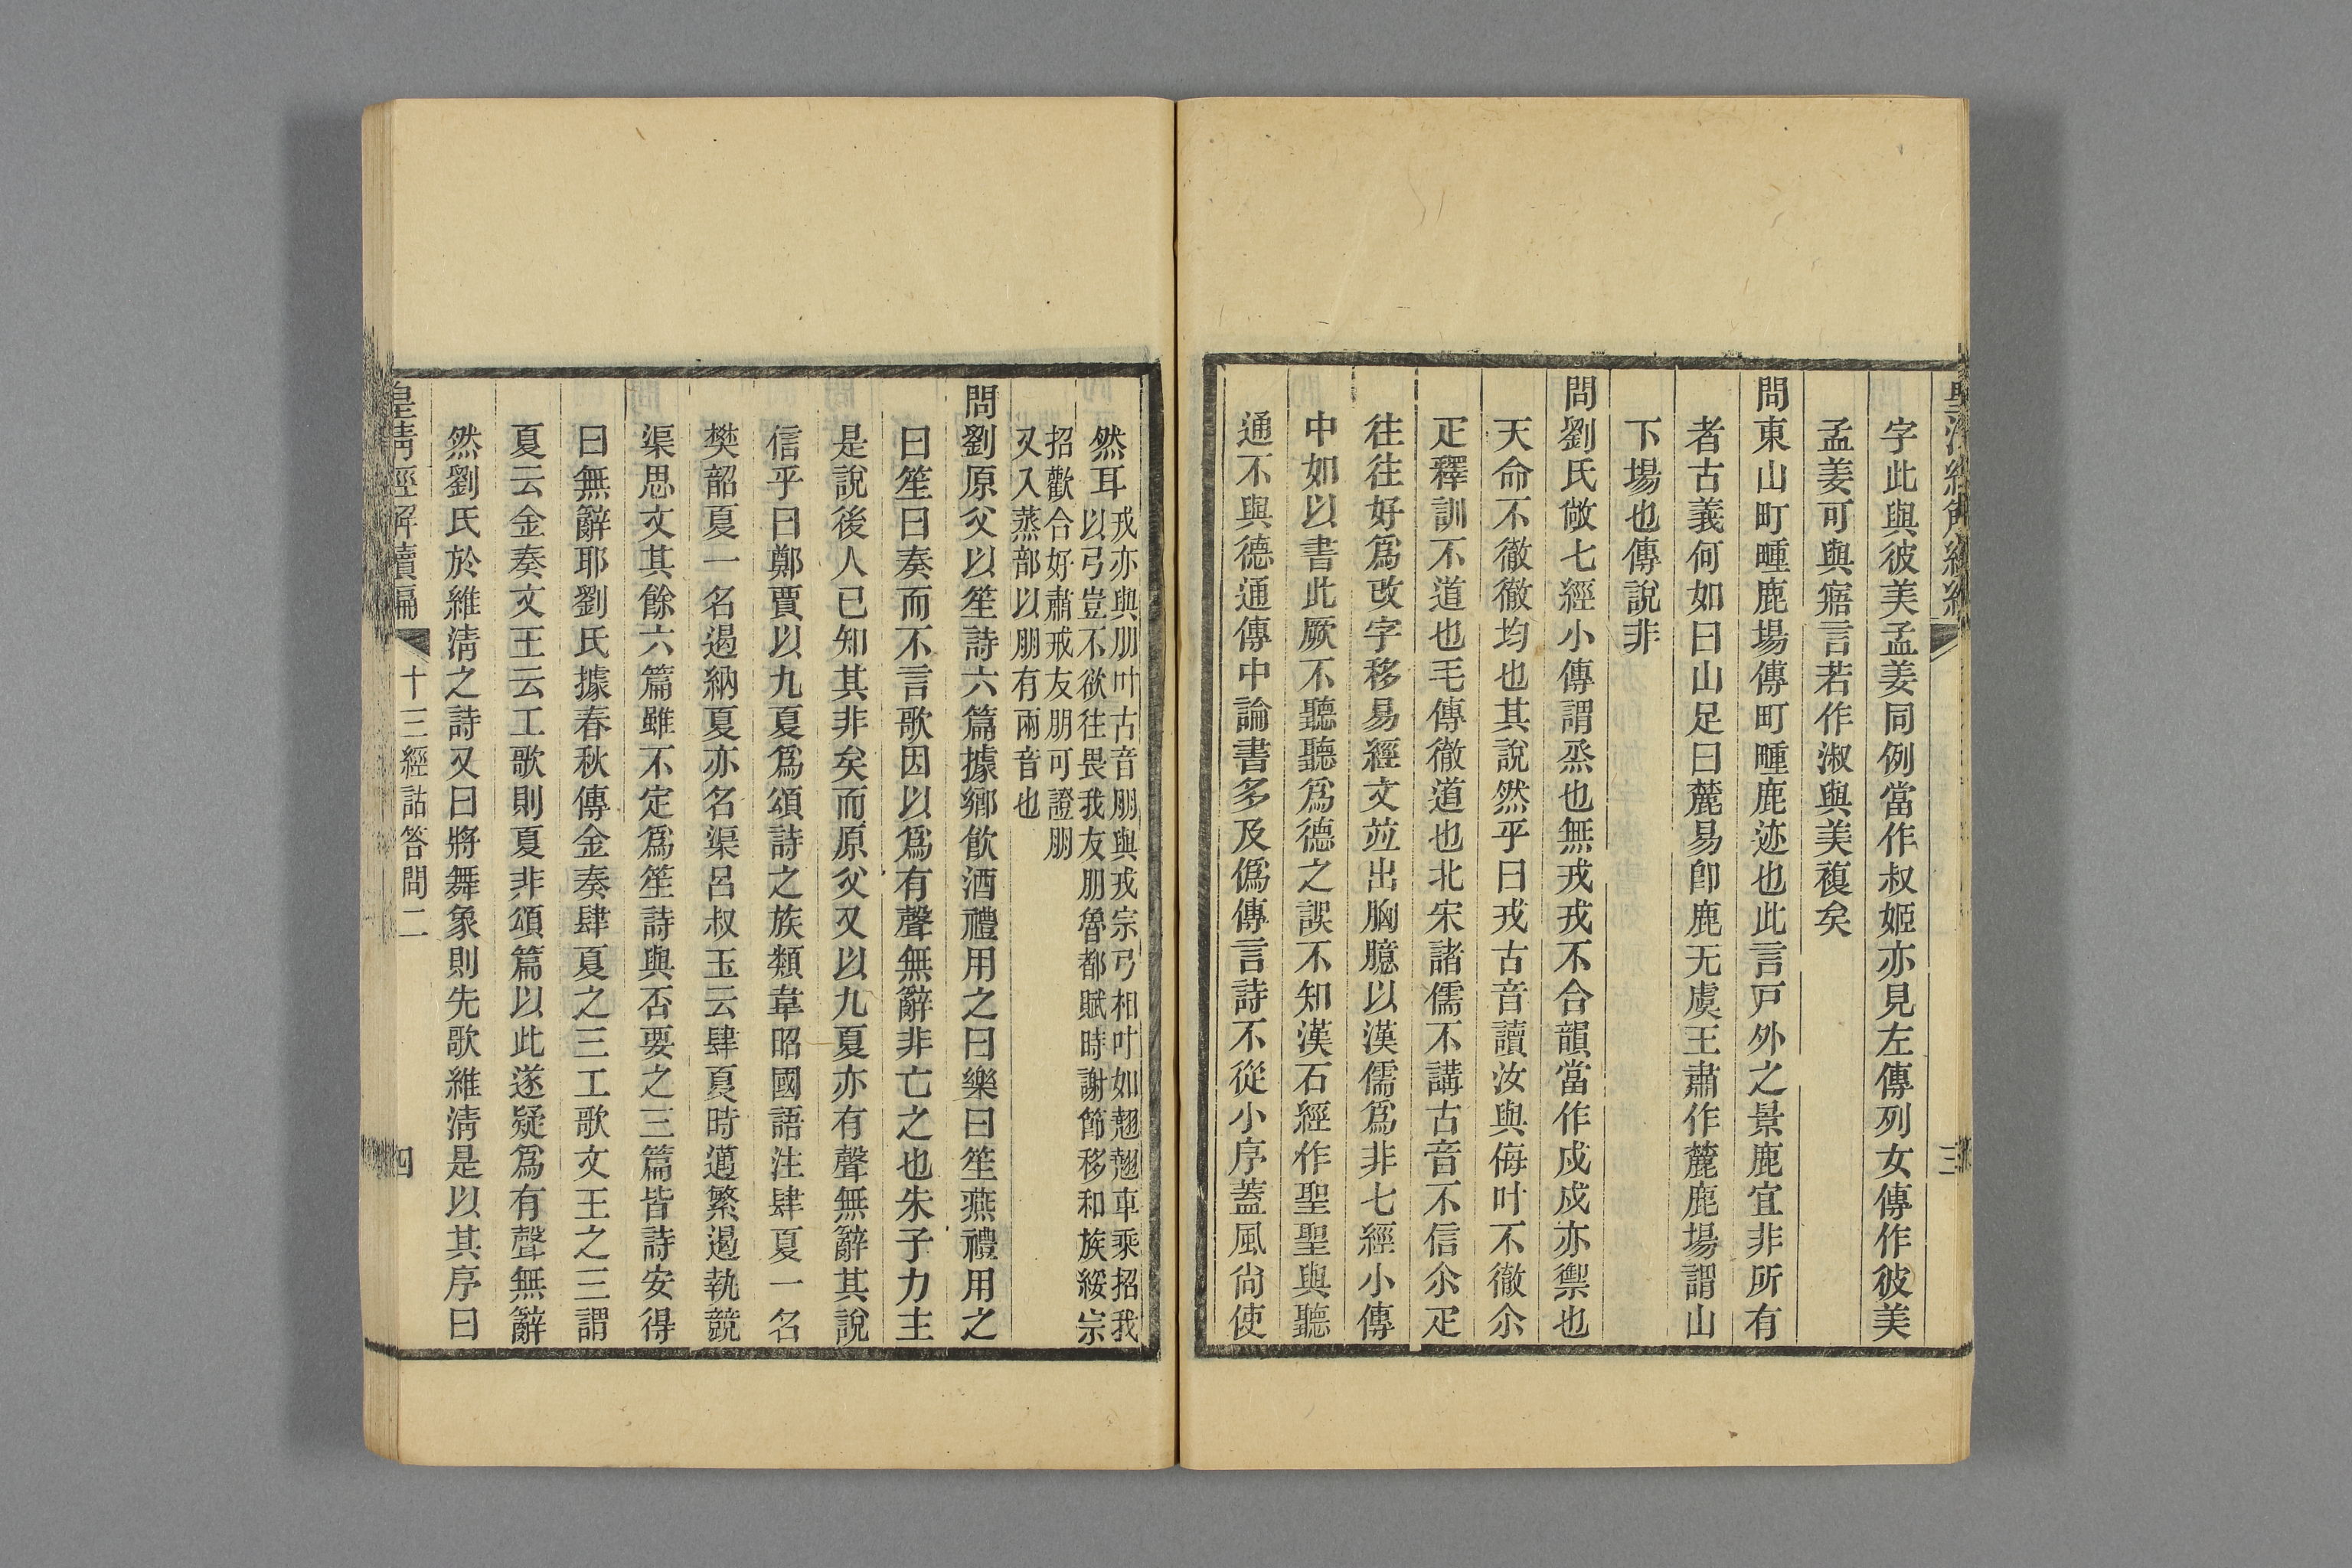 皇清經解續編
三
字此與彼美孟姜同例當作叔姬亦見左傳列女傳作彼美
孟姜可與寤言若作淑與美複矣
問東山町畽鹿場傳町畽鹿迹也此言戸外之景鹿宜非所有
者古義何如曰山足曰麓易卽鹿无虞王肅作麓鹿場謂山
下場也傳說非
問劉氏敞七經小傳謂烝也無戎戎不合韻當作戍戍亦禦也
天命不徹徹均也其說然乎曰戎古音讀汝與侮叶不徹尒
疋釋訓不道也毛傳徹道也北宋諸儒不講古音不信尒疋
往往好爲改字移易經文竝出胸臆以漢儒爲非七經小傳
中如以書此厥不聽聽爲德之誤不知漢石經作聖聖與聽
通不與德通傳中論書多及僞傳言詩不從小序蓋風尙使
然耳戎亦與朋叶古音朋與戎宗弓相叶如翹翹車乘招我
以弓豈不欲往畏我友朋魯都賦時謝節移和族綏宗
招歡合好肅戒友朋可證朋
又入蒸部以朋有兩音也
問劉原父以笙詩六篇據鄉飮酒禮用之曰樂曰笙燕禮用之
曰笙曰奏而不言歌因以爲有聲無辭非亡之也朱子力主
是說後人已知其非矣而原父又以九夏亦有聲無辭其說
信乎曰鄭賈以九夏爲頌詩之族類韋昭國語注肆夏一名
樊韶夏一名遏納夏亦名渠呂叔玉云肆夏時邁繁遏執競
渠思文其餘六篇雖不定爲笙詩與否要之三篇皆詩安得
曰無辭耶劉氏據春秋傳金奏肆夏之三工歌文王之三謂
夏云金奏文王云工歌則夏非頌篇以此遂疑爲有聲無辭
然劉氏於維淸之詩又曰將舞象則先歌維淸是以其序曰
皇清經解續編
十三經詁答問二
四